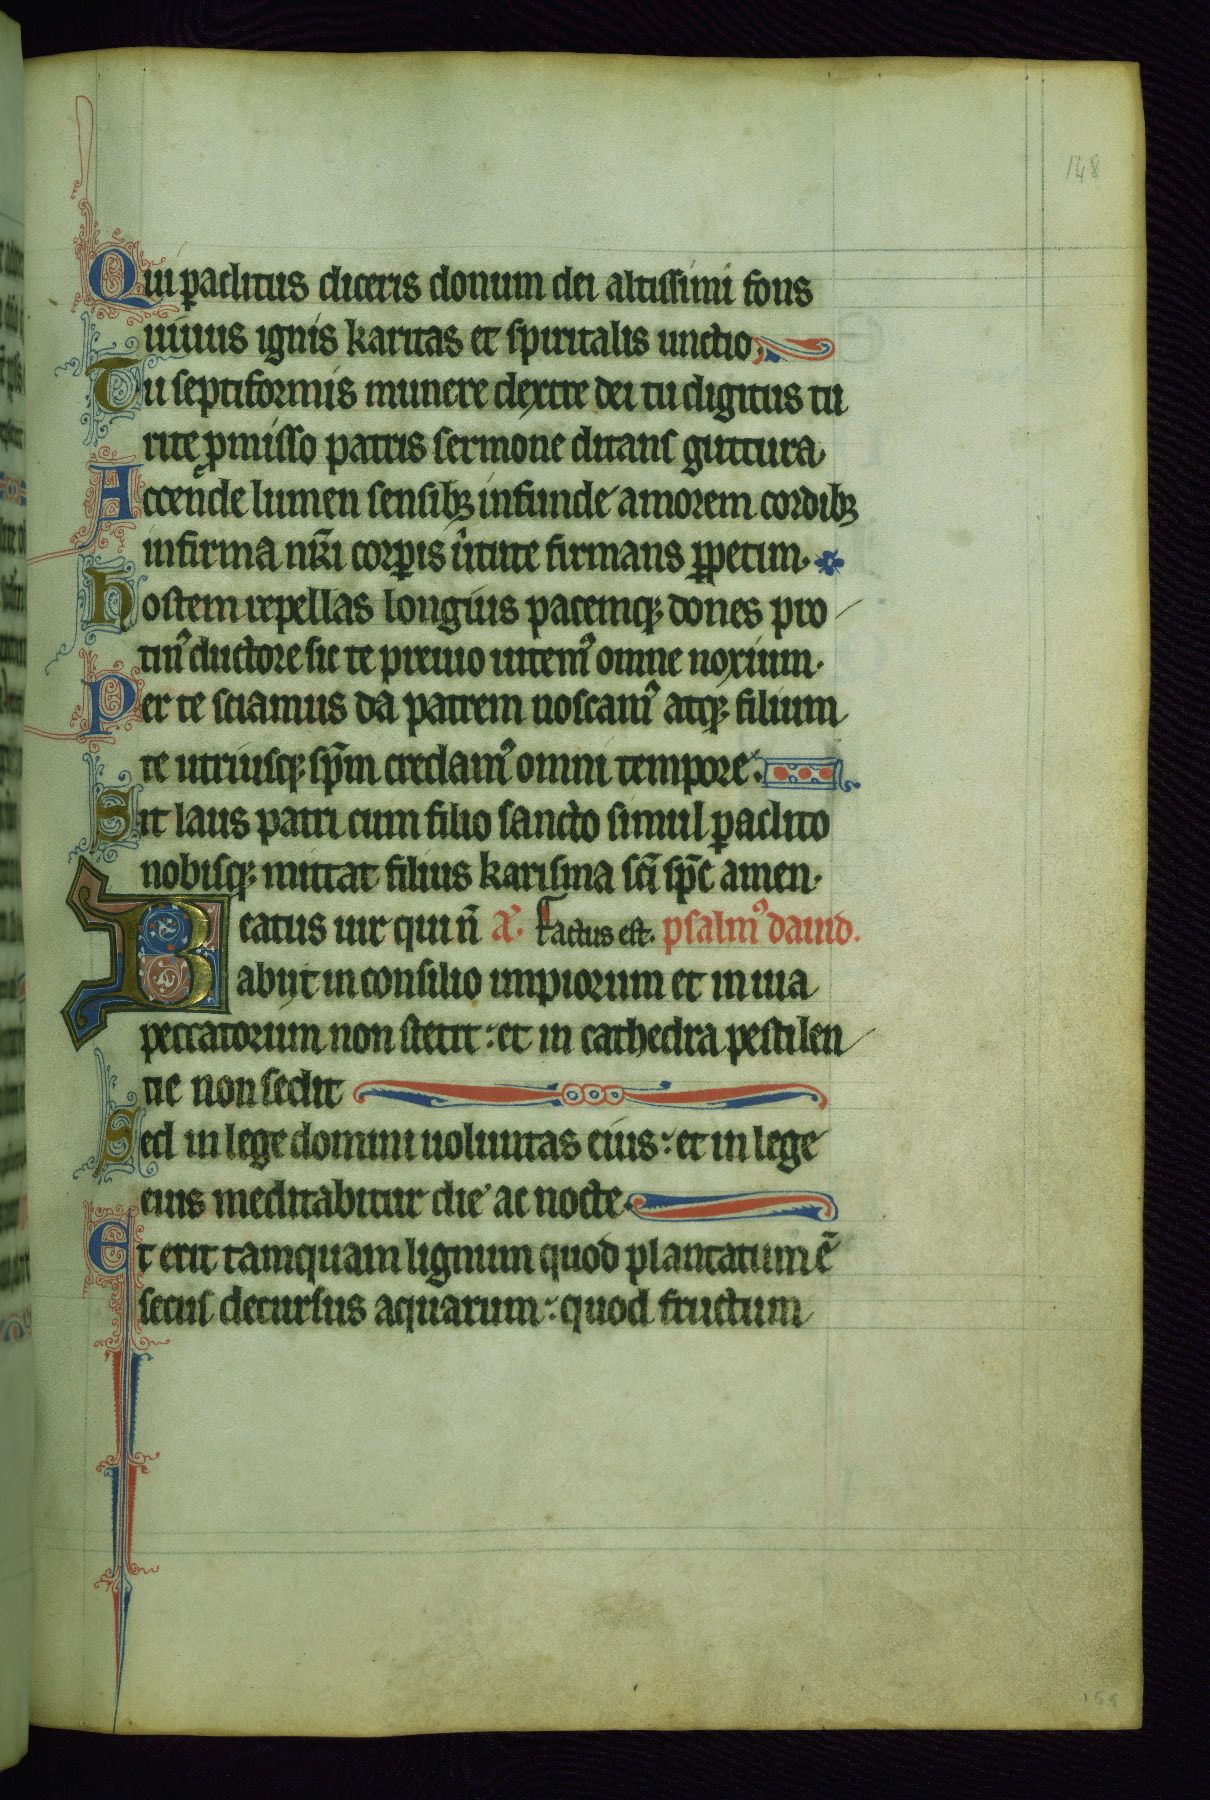 148
Qui ꝑaclitus diceris donum dei altissimi fons
uiuus ignis karitas et spiritalis unctio.
Tu septiformis munere dextre dei tu digitus tu
rite ꝓmisso patris sermone ditans guttura.
Accende lumen sensibꝫ infunde amorem cordibꝫ
infirma nr̄i corꝑis uͥtute firmans ꝑpetim.
Hostem repellas longius pacemqꝫ dones pro
tinꝰ ductore sic te preuio uitemꝰ omne noxium.
Per te sciamus da patrem noscamꝰ atqꝫ filium
te utriusqꝫ sp̄m credamꝰ omni tempore.
Sit laus patri cum filio sancto simul ꝑaclito
nobisqꝫ mittat filius karisma sc̄i sp̄c amen.
Beatus uir qui n̄ a᷒. Factus est. psalmꝰ dauid.
abijt in consilio impiorum et in uia
peccatorum non stetit: et in cathedra pestilen
tie non sedit
Sed in lege domini uoluntas eius: et in lege
eius meditabitur die ac nocte.
Et erit tamquam lignum quod plantatum ē
secus decursus aquarum: quod fructum